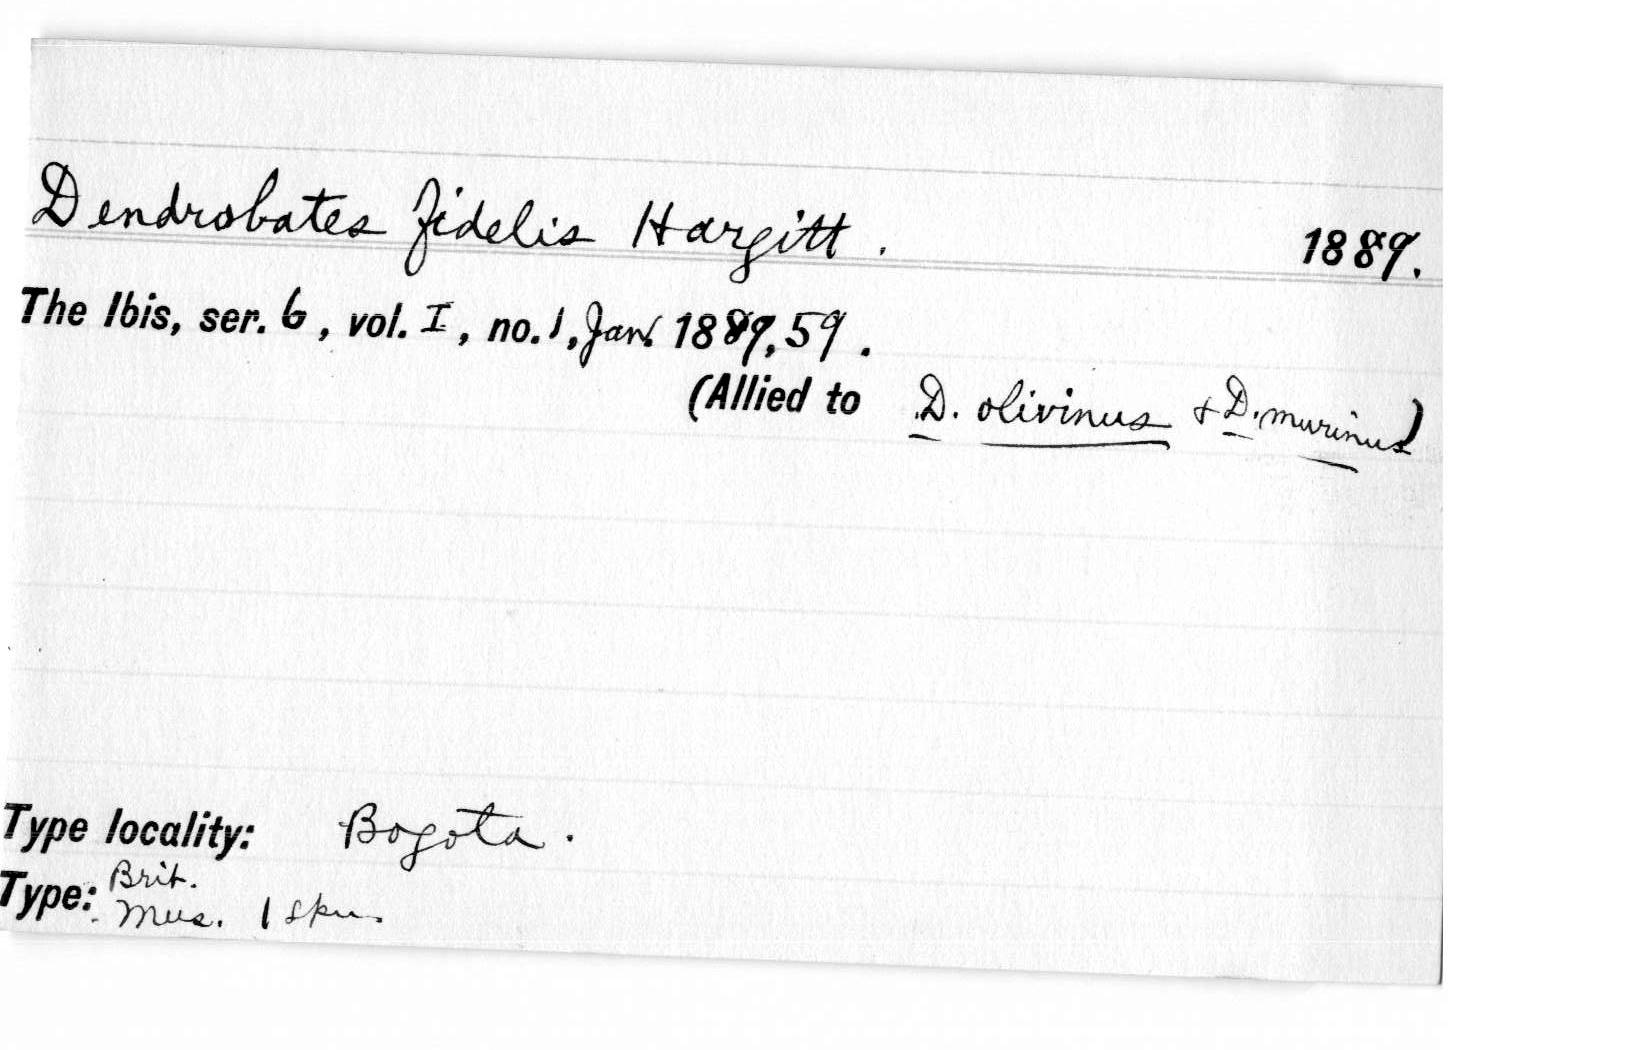 Dendrobates fidelis Hargitt. 1889.
The Ibis, ser. 6, vol. I, no. 1, Jan. 1889, 59.
(Allied to D. olivinus & D. murinus)
Type locality: Bogota.
Type: Brit.
Mus. 1 spm.